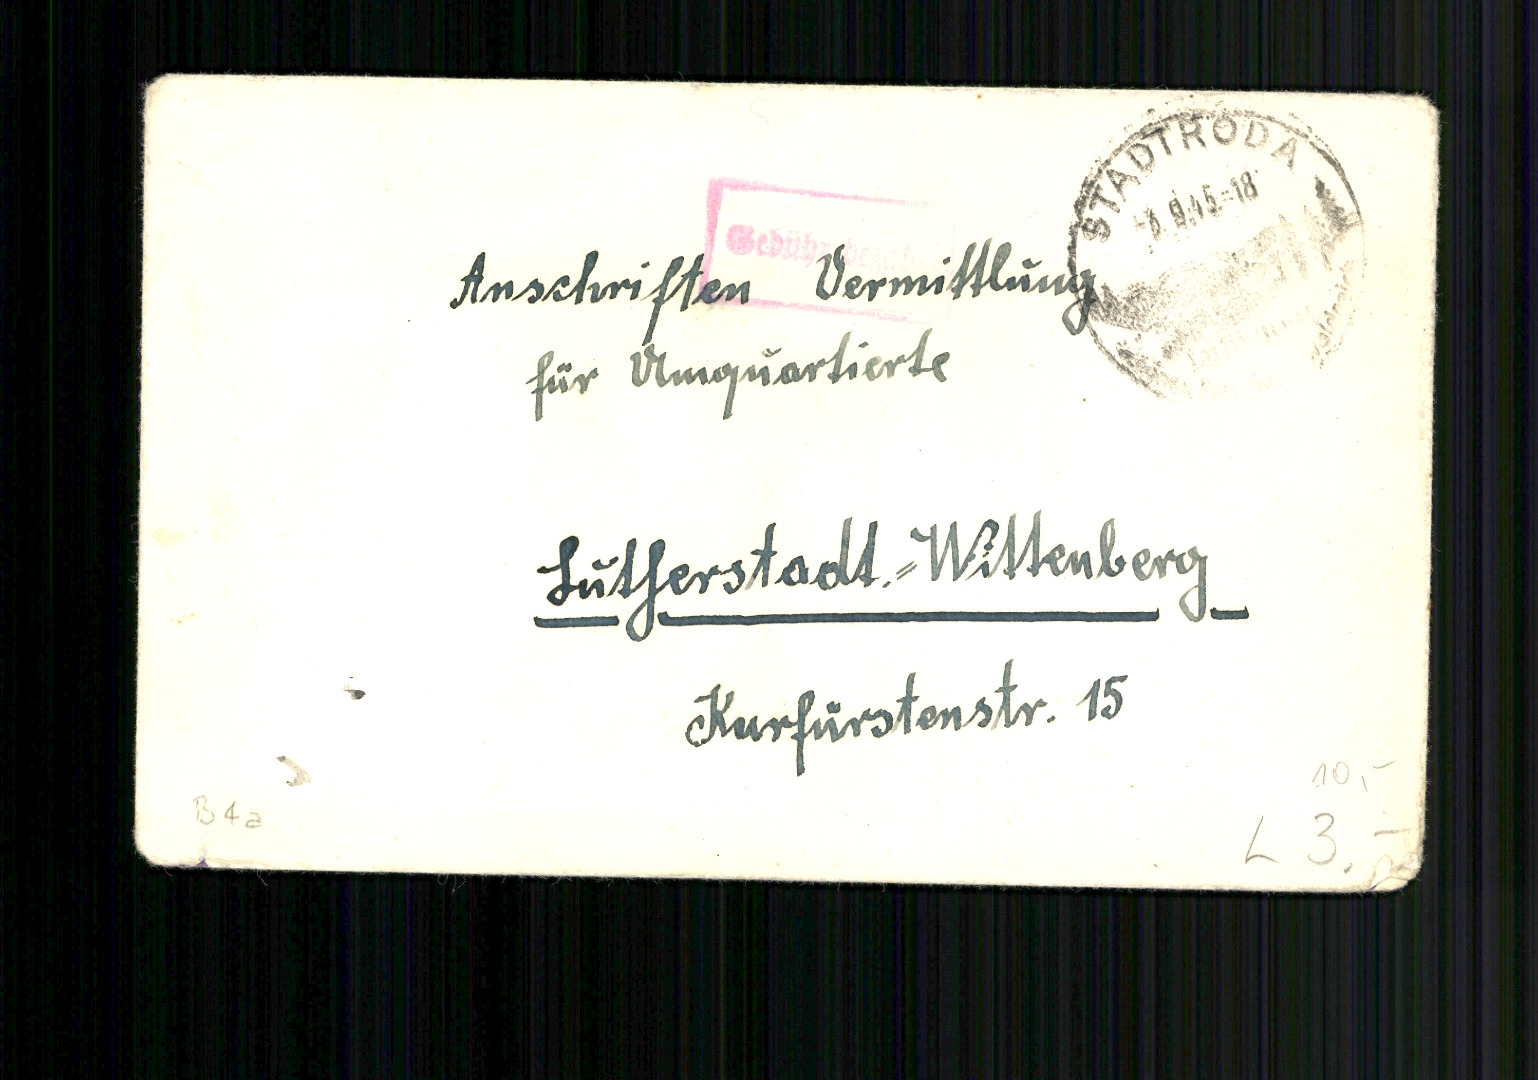 STADTRODA
9.45.-18
Gebühr bezahlt
Anschriften Vermittlung
für Umquartierte
Lutherstadt.=Wittenberg
Kurfürstenstr. 15
10,-
B4a
L 3.-